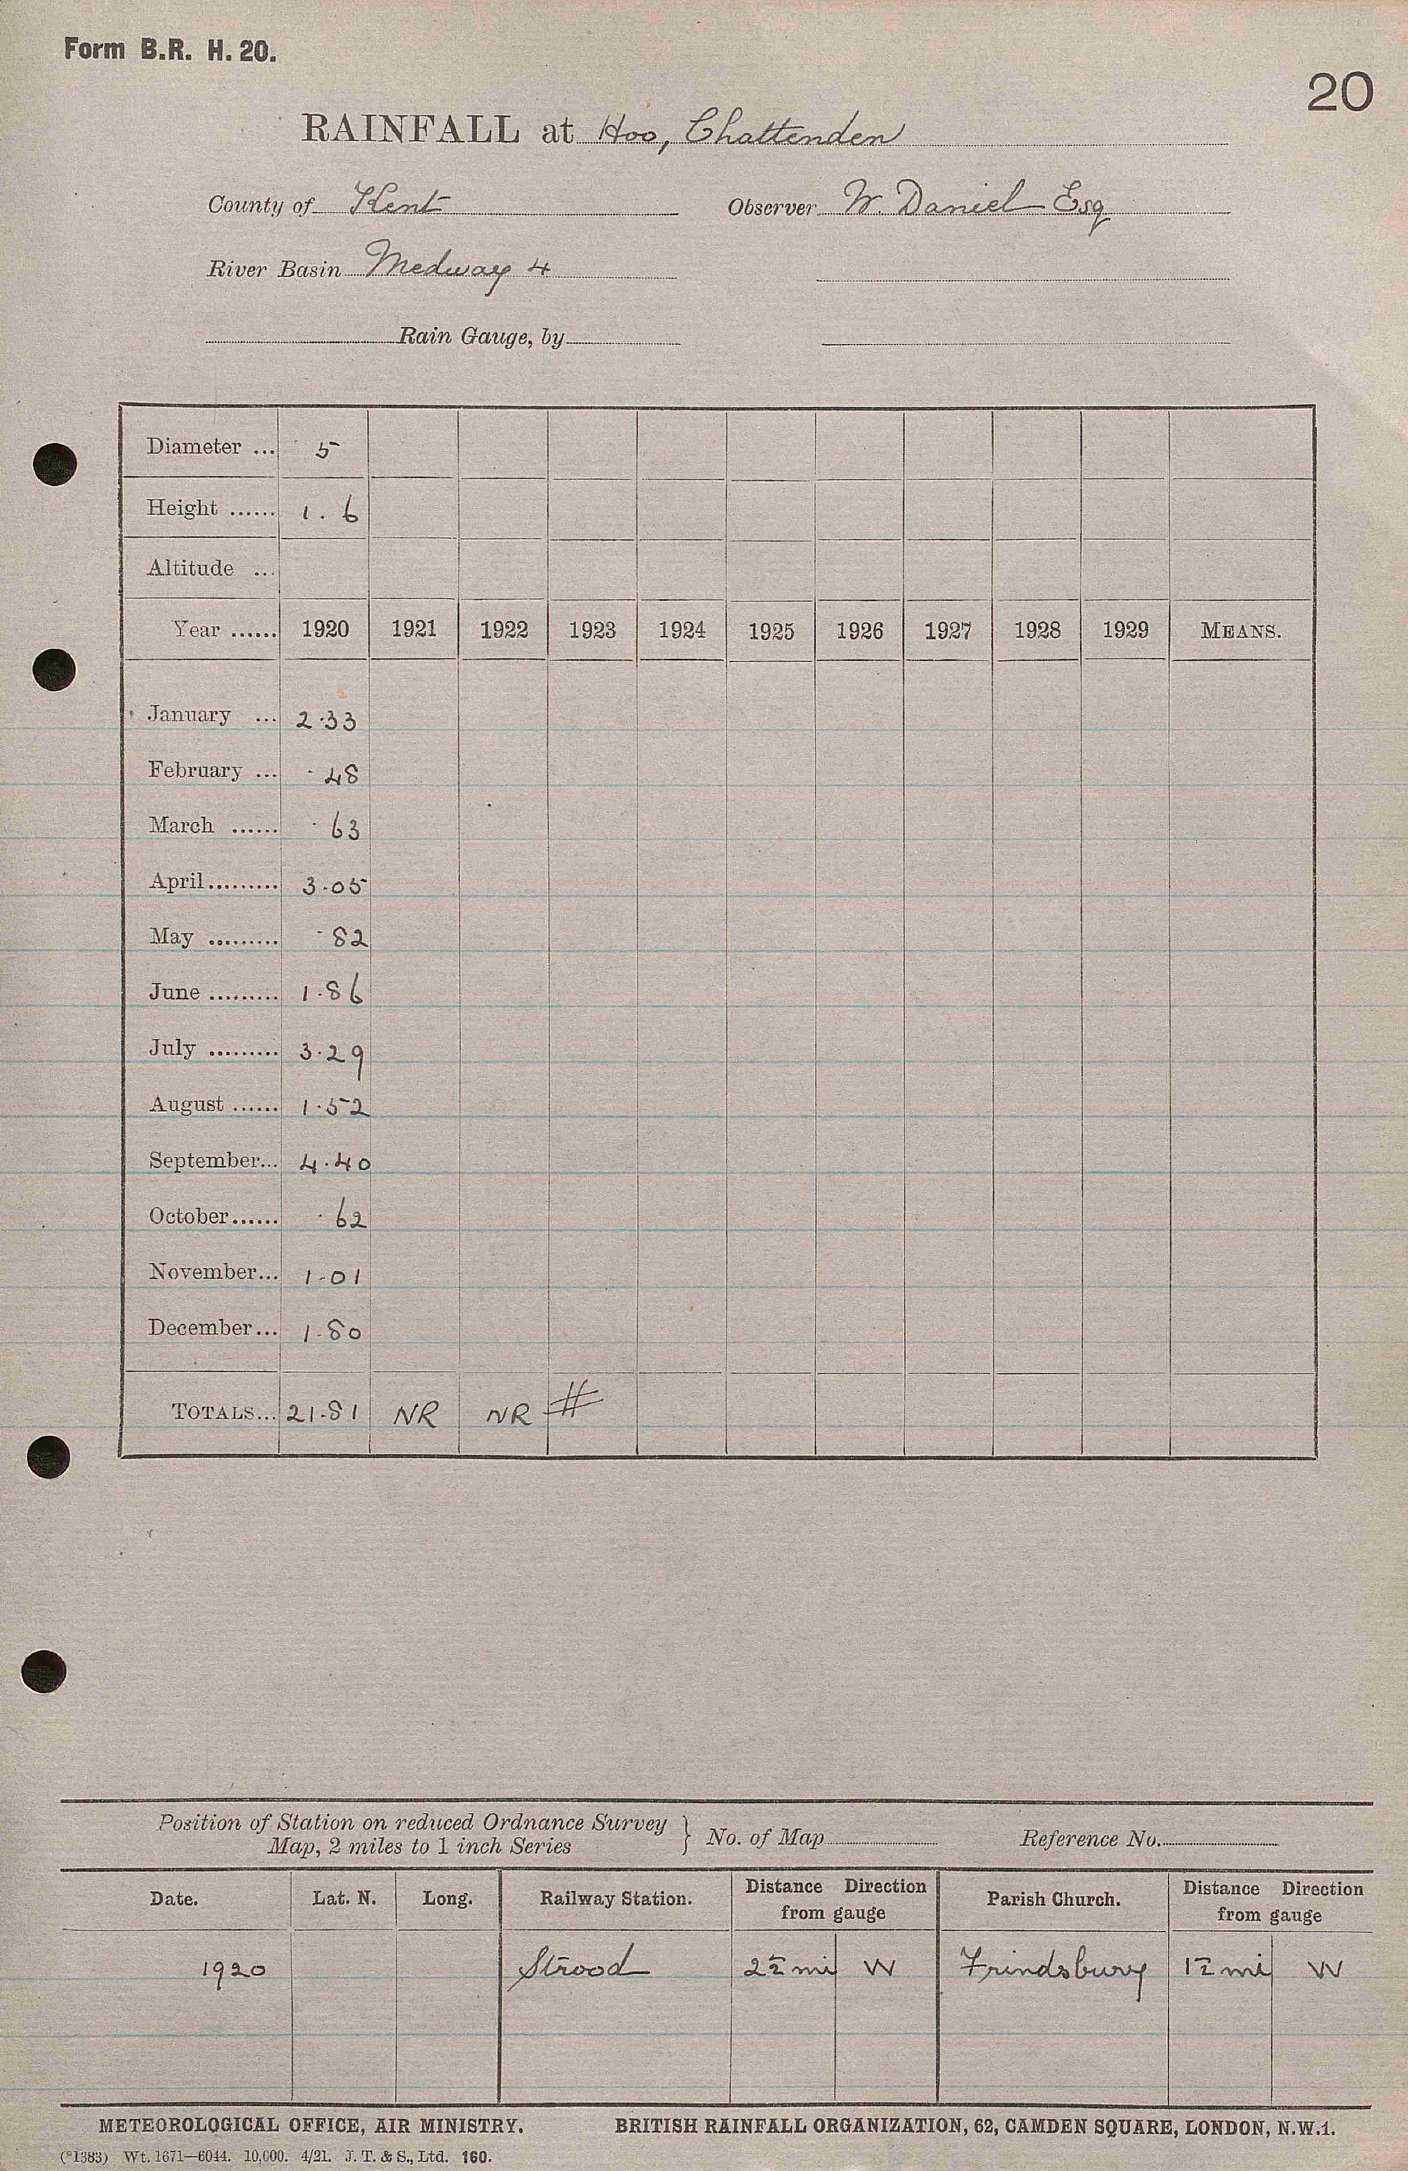 Form B.R. H. 20.
20
RAINFALL at Hoo, Chattenden
County of Kent Observer W. Daniel Esq
River Basin Medway 4
Rain Gauge, by
Diameter ... 5
Height ...... 1.6
Altitude ...
Year ...... 1920 1921 1922 1923 1924 1925 1926 1927 1928 1929 MEANS.
January ... 2.33
February ... .48
March ...... .63
April......... 3.05
May ......... .82
June ......... 1.86
July ......... 3.29
August ...... 1.52
September... 4.40
October...... .62
November... 1.01
December... 1.80
TOTALS... 21.81 NR NR #
Position of Station on reduced Ordnance Survey
Map, 2 miles to 1 inch Series } No. of Map Reference No.
Date. Lat. N. Long. Railway Station. Distance Direction from gauge Parish Church. Distance Direction from gauge
1920 Strood 2½ mi W Frindsbury 1½ mi W
METEOROLOGICAL OFFICE, AIR MINISTRY. BRITISH RAINFALL ORGANIZATION, 62, CAMDEN SQUARE, LONDON, N.W.1.
(*1383) Wt. 1671—6044. 10,000. 4/21. J. T. & S., Ltd. 160.